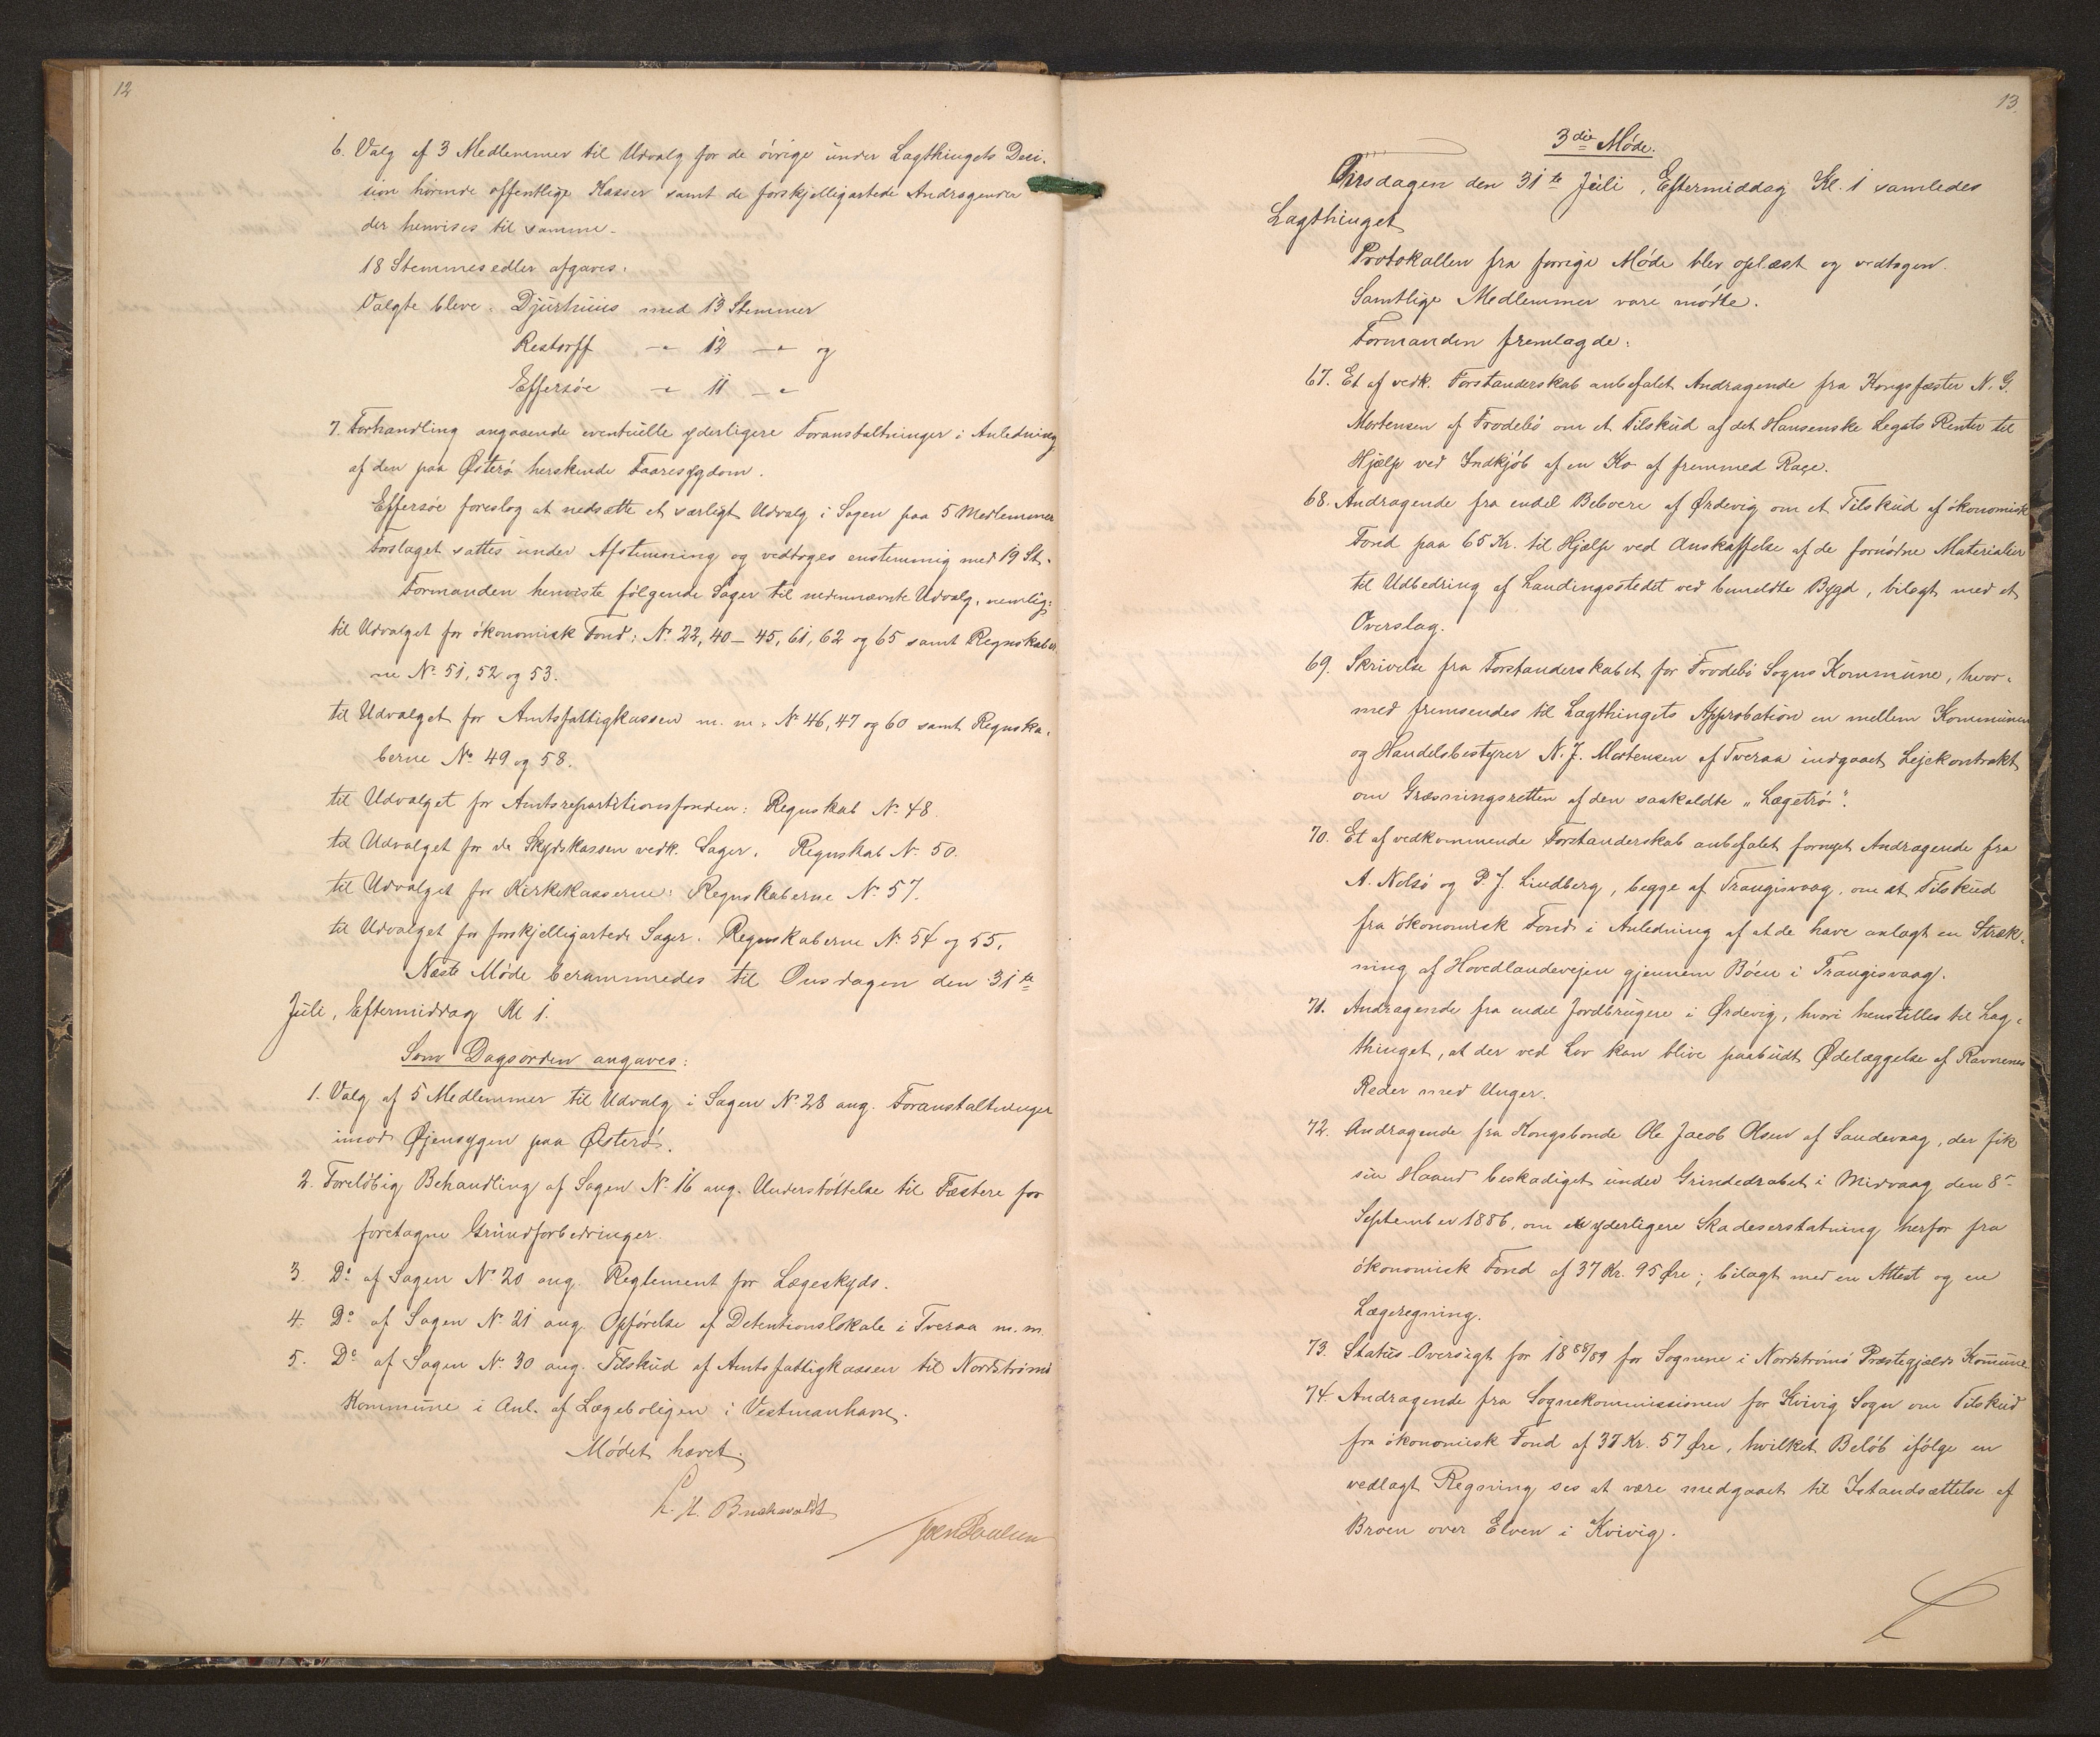 12
6. Valg af 3 Medlemmer til Udvalg for de övrige under Lagthingets Deci-
sion hörende offentlige Kasser samt de forskjelligartede Andragender
der henvises til samme.
18 Stemmesedler afgaves.
Valgte bleve: Djurhuus med 13 Stemmer
Restorff —"— 12 —"— og
Effersöe —"— 11 —"—
7. Forhandling angaaende eventuelle yderligere Foranstaltninger i Anledning
af den paa Österö herskende Faaresygdom.
Effersöe foreslog at nedsætte et særligt Udvalg i Sagen paa 5 Medlemmer
Forslaget sattes under Afstemning og vedtoges enstemmig med 19 St.
Formanden henviste fölgende Sager til nedennævnte Udvalg, nemlig:
til Udvalget for ökonomisk Fond: No 22, 40–45, 61, 62 og 65 samt Regnskaber
ne No 51, 52 og 53.
til Udvalget for Amtsfattigkassen m. m: No 46, 47 og 60 samt Regnska-
berne No 49 og 58.
til Udvalget for Amtsrepartitionsfonden: Regnskab No 48.
til Udvalget for de Skydskassen vedk. Sager: Regnskab No 50.
til Udvalget for Kirkekasserne: Regnskaberne No 57.
til Udvalget for forskjelligartede Sager: Regnskaberne No 54 og 55.
Næste Möde berammedes til Onsdagen den 31te
Juli, Eftermiddag Kl 1.
Som Dagsorden angaves:
1. Valg af 5 Medlemmer til Udvalg i Sagen No 28 ang. Foranstaltninger
imod Øjensygen paa Østerö.
2. Foreløbig Behandling af Sagen No 16 ang. Understöttelse til Fæstere for
foretagne Grundforbedringer.
3. Do af Sagen No 20 ang. Reglement for Lægeskyds.
4. Do af Sagen No 21 ang. Opförelse af Detentionslokale i Tveraa m. m.
5. Do af Sagen No 30 ang. Tilskud af Amtsfattigkassen til Nordströmö
Kommune i Anl. af Lægeboligen i Vestmanhavn.
Mödet hævet.
C. H. Buchwaldt
Joen Poulsen
13.
3die Möde.
Onsdagen den 31te Juli, Eftermiddag Kl. 1 samledes
Lagthinget
Protokollen fra forrige Möde blev oplæst og vedtagen.
Samtlige Medlemmer vare mödte.
Formanden fremlagde:
67. Et af vedk. Forstanderskab anbefalet Andragende fra Kongsfæster N. G.
Mortensen af Frodebö om et Tilskud af det Hansenske Legats Renter til
Hjælp ved Indkjöb af en Ko af fremmed Race.
68. Andragende fra endel Beboere af Ørdevig om et Tilskud af ökonomisk
Fond paa 65 Kr. til Hjælp ved Anskaffelse af de fornödne Materialier
til Udbedring af Landingsstedet ved bemeldte Bygd, bilagt med et
Overslag.
69. Skrivelse fra Forstanderskabet for Frodebö Sogns Kommune, hvor-
med fremsendes til Lagthingets Approbation en mellem Kommunen
og Handelsbestyrer N. J. Mortensen af Tveraa indgaaet Lejekontrakt
om Græsningsretten af den saakaldte "Lægetrö".
70. Et af vedkommende Forstanderskab anbefalet fornyet Andragende fra
A. Nolsö og P. J. Lindberg, begge af Trangisvaag, om et Tilskud
fra ökonomisk Fond i Anledning af at de have anlagt en Stræk-
ning af Hovedlandevejen gjennem Böen i Trangisvaag.
71. Andragende fra endel Jordbrugere i Ørdevig, hvori henstilles til Lag-
thinget, at der ved Lov kan blive paabudt Ødelæggelse af Ravnenes
Reder med Unger.
72. Andragende fra Kongsbonde Ole Jacob Olsen af Sandevaag, der fik
sin Haand beskadiget under Grindedrabet i Midvaag den 8de
September 1886, om yderligere Skadeserstatning herfor fra
ökonomisk Fond af 37 Kr. 95 Øre; bilagt med en Attest og en
Lægeregning.
73. Status-Oversigt for 1888/89 for Sognene i Nordströmö Præstegjælds Kommune
74. Andragende fra Sognekommissionen for Kvivig Sogn om Tilskud
fra ökonomisk Fond af 37 Kr. 57 Øre, hvilket Belöb ifölge en
vedlagt Regning ses at være medgaaet til Istandsættelse af
Broen over Elven i Kvivig.